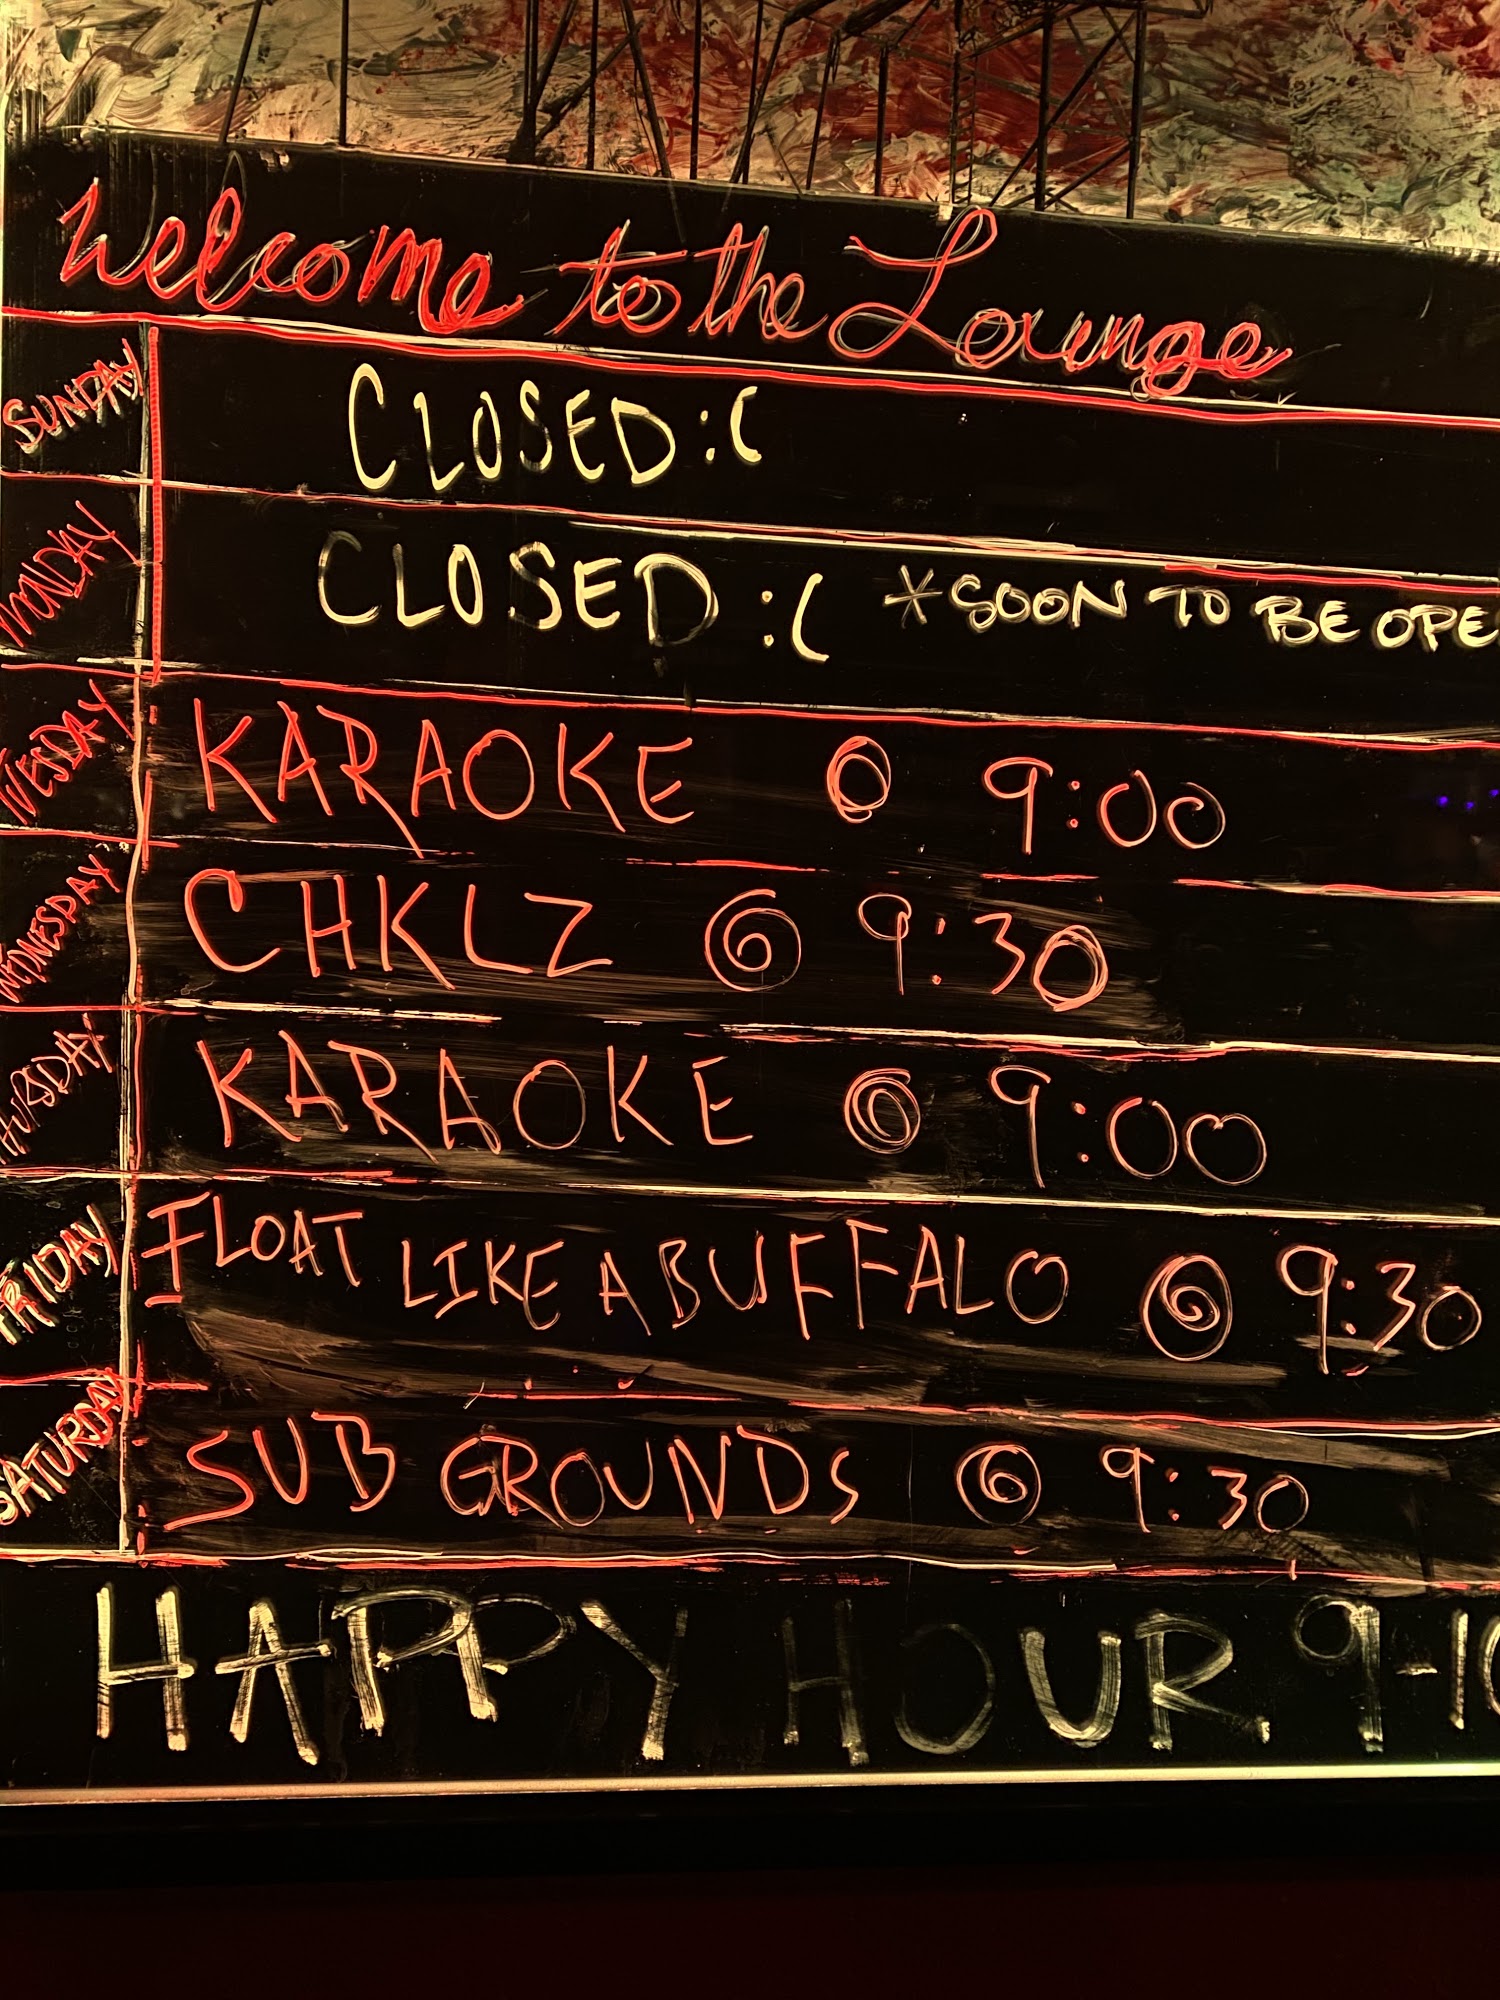 Welcome to the Lounge
SUNDAY CLOSED :(
MONDAY CLOSED :( *SOON TO BE OPE
TUESDAY KARAOKE @ 9:00
WEDNESDAY CHKLZ @ 9:30
THURSDAY KARAOKE @ 9:00
FRIDAY FLOAT LIKE A BUFFALO @ 9:30
SATURDAY SUB GROUNDS @ 9:30
HAPPY HOUR 9-10